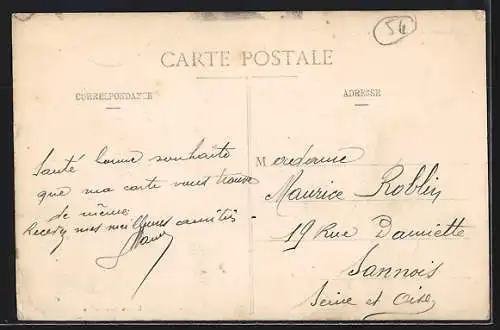 54
CARTE POSTALE
CORRESPONDANCE
ADRESSE
Santé bonne souhaite
que ma carte vous trouve
de même
Recevez mes meilleures amitiés
Madame
Maurice Roblin
19 Rue Damiette
Sannois
Seine et Oise